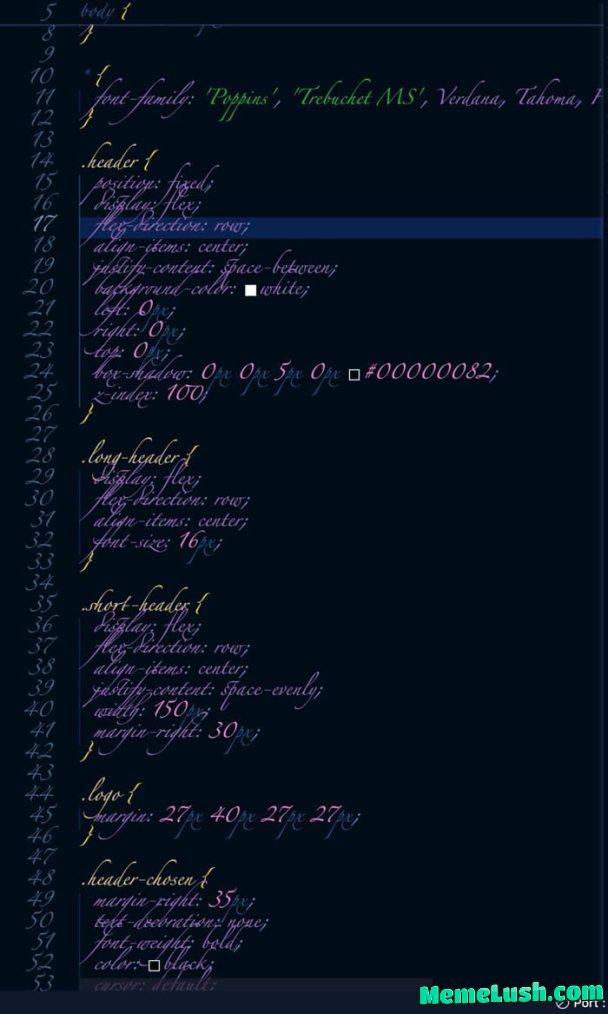 5 body {
8 }
9
10 * {
11 font-family: 'Poppins', 'Trebuchet MS', Verdana, Tahoma,
12 }
13
14 .header {
15 position: fixed;
16 display: flex;
17 flex-direction: row;
18 align-items: center;
19 justify-content: space-between;
20 background-color: white;
21 left: 0px;
22 right: 0px;
23 top: 0px;
24 box-shadow: 0px 0px 5px 0px #00000082;
25 z-index: 100;
26 }
27
28 .long-header {
29 display: flex;
30 flex-direction: row;
31 align-items: center;
32 font-size: 16px;
33 }
34
35 .short-header {
36 display: flex;
37 flex-direction: row;
38 align-items: center;
39 justify-content: space-evenly;
40 width: 150px;
41 margin-right: 30px;
42 }
43
44 .logo {
45 margin: 27px 40px 27px 27px;
46 }
47
48 .header-chosen {
49 margin-right: 35px;
50 text-decoration: none;
51 font-weight: bold;
52 color: black;
53 cursor: default;
MemeLush.com
Port :